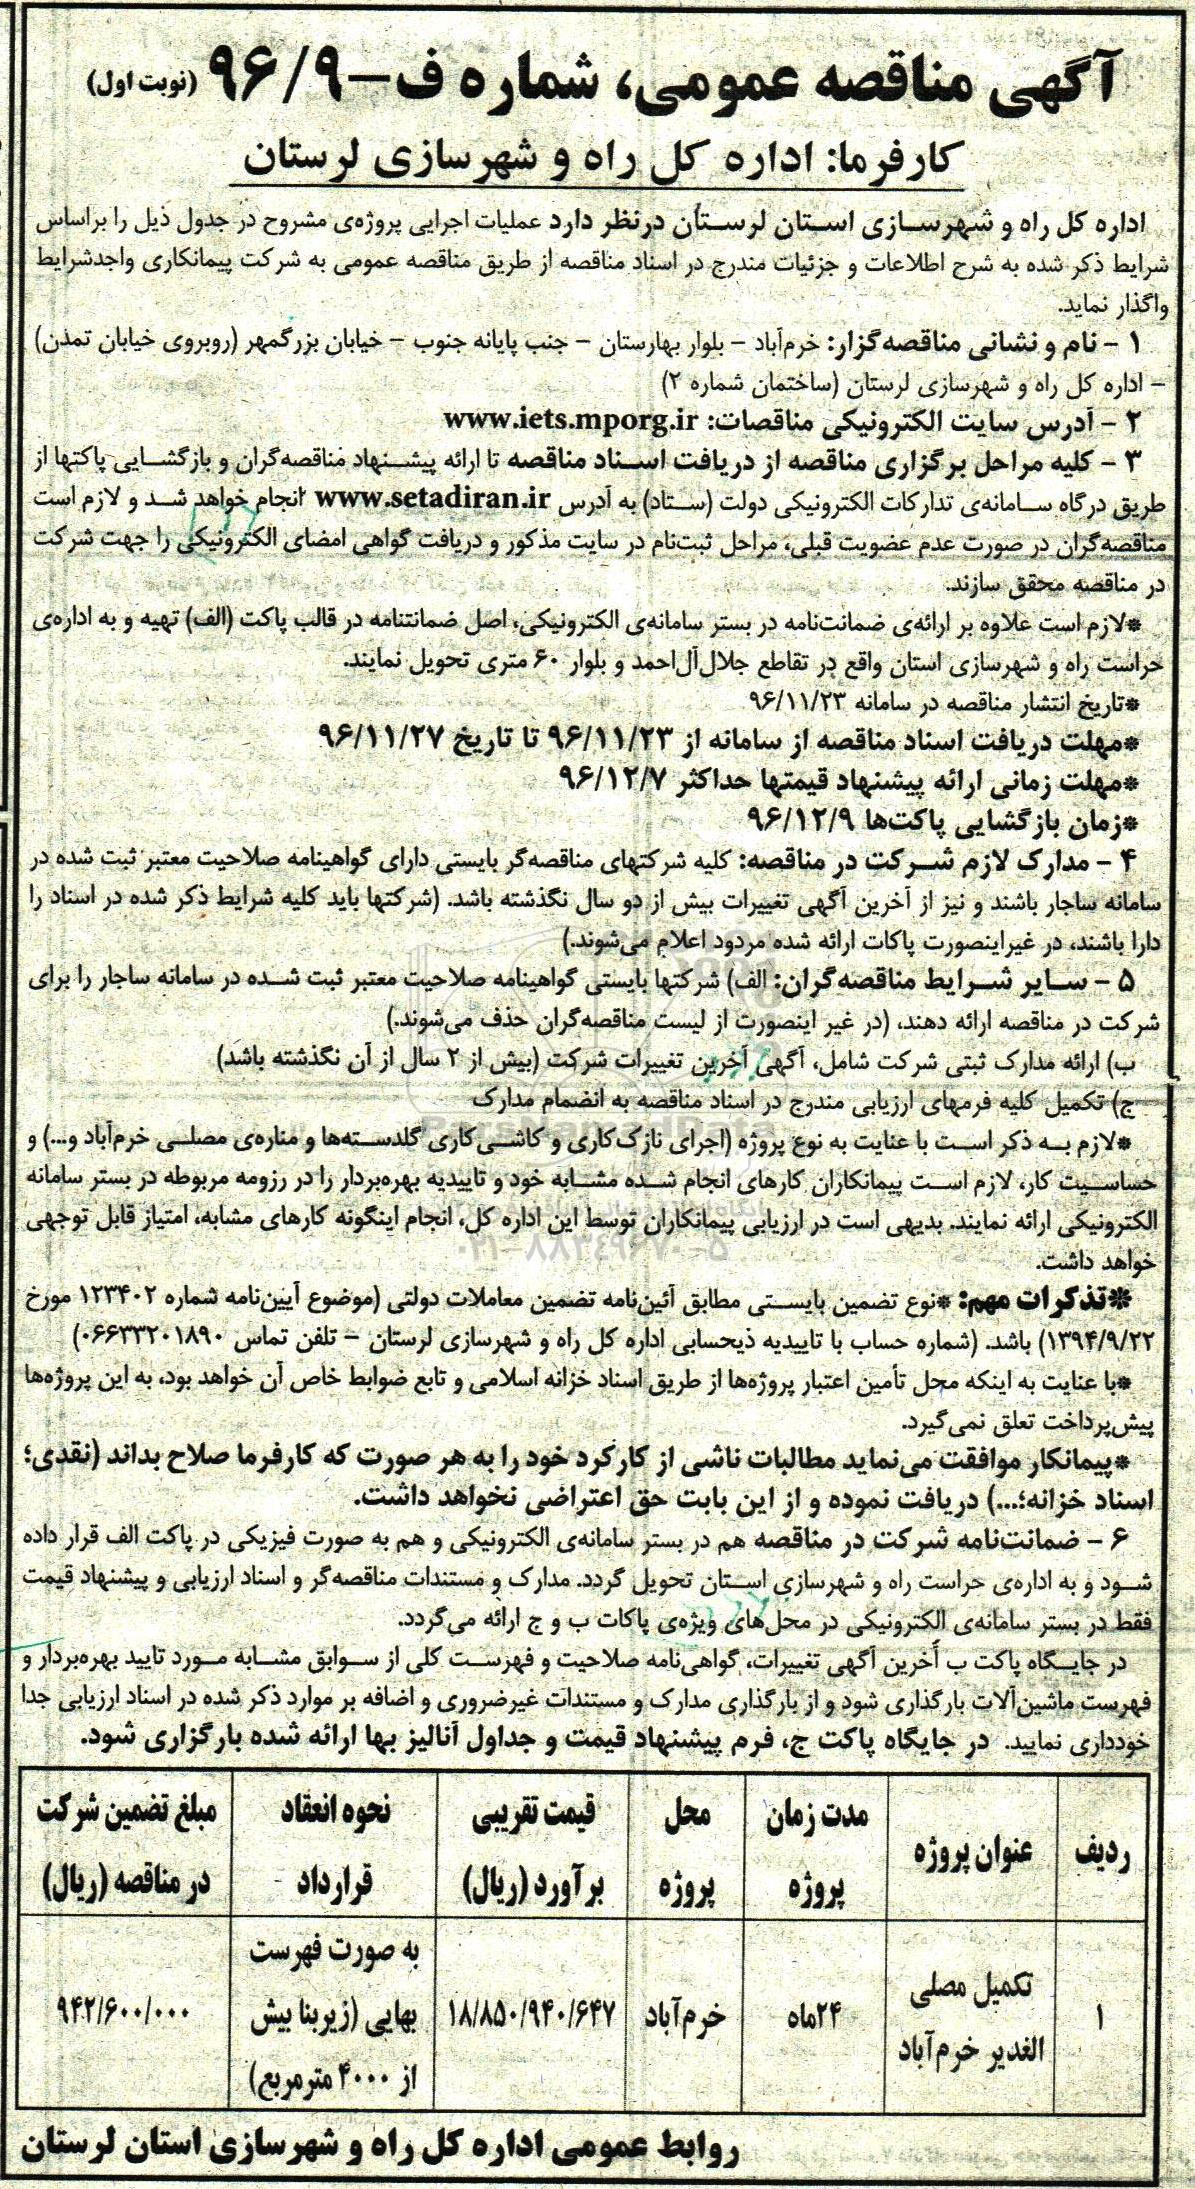 آگهی مناقصه عمومی، شماره ف-۹۶/۹ (نوبت اول)
کارفرما: اداره کل راه و شهرسازی لرستان
اداره کل راه و شهرسازی استان لرستان درنظر دارد عملیات اجرایی پروژه‌ی مشروح در جدول ذیل را براساس
شرایط ذکر شده به شرح اطلاعات و جزئیات مندرج در اسناد مناقصه از طریق مناقصه عمومی به شرکت پیمانکاری واجدشرایط
واگذار نماید.
۱ - نام و نشانی مناقصه‌گزار: خرم‌آباد - بلوار بهارستان - جنب پایانه جنوب - خیابان بزرگمهر (روبروی خیابان تمدن)
- اداره کل راه و شهرسازی لرستان (ساختمان شماره ۲)
۲ - آدرس سایت الکترونیکی مناقصات: www.iets.mporg.ir
۳ - کلیه مراحل برگزاری مناقصه از دریافت اسناد مناقصه تا ارائه پیشنهاد مناقصه‌گران و بازگشایی پاکتها از
طریق درگاه سامانه‌ی تدارکات الکترونیکی دولت (ستاد) به آدرس www.setadiran.ir انجام خواهد شد و لازم است
مناقصه‌گران در صورت عدم عضویت قبلی، مراحل ثبت‌نام در سایت مذکور و دریافت گواهی امضای الکترونیکی را جهت شرکت
در مناقصه محقق سازند.
*لازم است علاوه بر ارائه‌ی ضمانت‌نامه در بستر سامانه‌ی الکترونیکی، اصل ضمانتنامه در قالب پاکت (الف) تهیه و به اداره‌ی
حراست راه و شهرسازی استان واقع در تقاطع جلال‌آل‌احمد و بلوار ۶۰ متری تحویل نمایند.
*تاریخ انتشار مناقصه در سامانه ۹۶/۱۱/۲۳
*مهلت دریافت اسناد مناقصه از سامانه از ۹۶/۱۱/۲۳ تا تاریخ ۹۶/۱۱/۲۷
*مهلت زمانی ارائه پیشنهاد قیمتها حداکثر ۹۶/۱۲/۷
*زمان بازگشایی پاکت‌ها ۹۶/۱۲/۹
۴ - مدارک لازم شرکت در مناقصه: کلیه شرکتهای مناقصه‌گر بایستی دارای گواهینامه صلاحیت معتبر ثبت شده در
سامانه ساجار باشند و نیز از آخرین آگهی تغییرات بیش از دو سال نگذشته باشد. (شرکتها باید کلیه شرایط ذکر شده در اسناد را
دارا باشند، در غیراینصورت پاکات ارائه شده مردود اعلام می‌شوند.)
۵ - سایر شرایط مناقصه‌گران: الف) شرکتها بایستی گواهینامه صلاحیت معتبر ثبت شده در سامانه ساجار را برای
شرکت در مناقصه ارائه دهند، (در غیر اینصورت از لیست مناقصه‌گران حذف می‌شوند.)
ب) ارائه مدارک ثبتی شرکت شامل، آگهی آخرین تغییرات شرکت (بیش از ۲ سال از آن نگذشته باشد)
ج) تکمیل کلیه فرمهای ارزیابی مندرج در اسناد مناقصه به انضمام مدارک
*لازم به ذکر است با عنایت به نوع پروژه (اجرای نازک‌کاری و کاشی‌کاری گلدسته‌ها و مناره‌ی مصلی خرم‌آباد و...) و
حساسیت کار، لازم است پیمانکاران کارهای انجام شده مشابه خود و تاییدیه بهره‌بردار را در رزومه مربوطه در بستر سامانه
الکترونیکی ارائه نمایند. بدیهی است در ارزیابی پیمانکاران توسط این اداره کل، انجام اینگونه کارهای مشابه، امتیاز قابل توجهی
۰۲۱-۸۸۳۴۹۶۷۰-۵
خواهد داشت.
*تذکرات مهم: *نوع تضمین بایستی مطابق آئین‌نامه تضمین معاملات دولتی (موضوع آیین‌نامه شماره ۱۲۳۴۰۲ مورخ
۱۳۹۴/۹/۲۲) باشد. (شماره حساب با تاییدیه ذیحسابی اداره کل راه و شهرسازی لرستان - تلفن تماس ۰۶۶۳۳۲۰۱۸۹۰)
*با عنایت به اینکه محل تأمین اعتبار پروژه‌ها از طریق اسناد خزانه اسلامی و تابع ضوابط خاص آن خواهد بود، به این پروژه‌ها
پیش‌پرداخت تعلق نمی‌گیرد.
*پیمانکار موافقت می‌نماید مطالبات ناشی از کارکرد خود را به هر صورت که کارفرما صلاح بداند (نقدی؛
اسناد خزانه؛...) دریافت نموده و از این بابت حق اعتراضی نخواهد داشت.
۶ - ضمانت‌نامه شرکت در مناقصه هم در بستر سامانه‌ی الکترونیکی و هم به صورت فیزیکی در پاکت الف قرار داده
شود و به اداره‌ی حراست راه و شهرسازی استان تحویل گردد. مدارک و مستندات مناقصه‌گر و اسناد ارزیابی و پیشنهاد قیمت
فقط در بستر سامانه‌ی الکترونیکی در محل‌های ویژه‌ی پاکات ب و ج ارائه می‌گردد.
در جایگاه پاکت ب آخرین آگهی تغییرات، گواهی‌نامه صلاحیت و فهرست کلی از سوابق مشابه مورد تایید بهره‌بردار و
فهرست ماشین‌آلات بارگذاری شود و از بارگذاری مدارک و مستندات غیرضروری و اضافه بر موارد ذکر شده در اسناد ارزیابی جدا
خودداری نمایید. در جایگاه پاکت ج، فرم پیشنهاد قیمت و جداول آنالیز بها ارائه شده بارگزاری شود.
ردیف عنوان پروژه مدت زمان پروژه محل پروژه قیمت تقریبی برآورد (ریال) نحوه انعقاد قرارداد مبلغ تضمین شرکت در مناقصه (ریال)
۱ تکمیل مصلی الغدیر خرم‌آباد ۲۴ماه خرم‌آباد ۱۸/۸۵۰/۹۴۰/۶۴۷ به صورت فهرست بهایی (زیربنا بیش از ۴۰۰۰ مترمربع) ۹۴۲/۶۰۰/۰۰۰
روابط عمومی اداره کل راه و شهرسازی استان لرستان